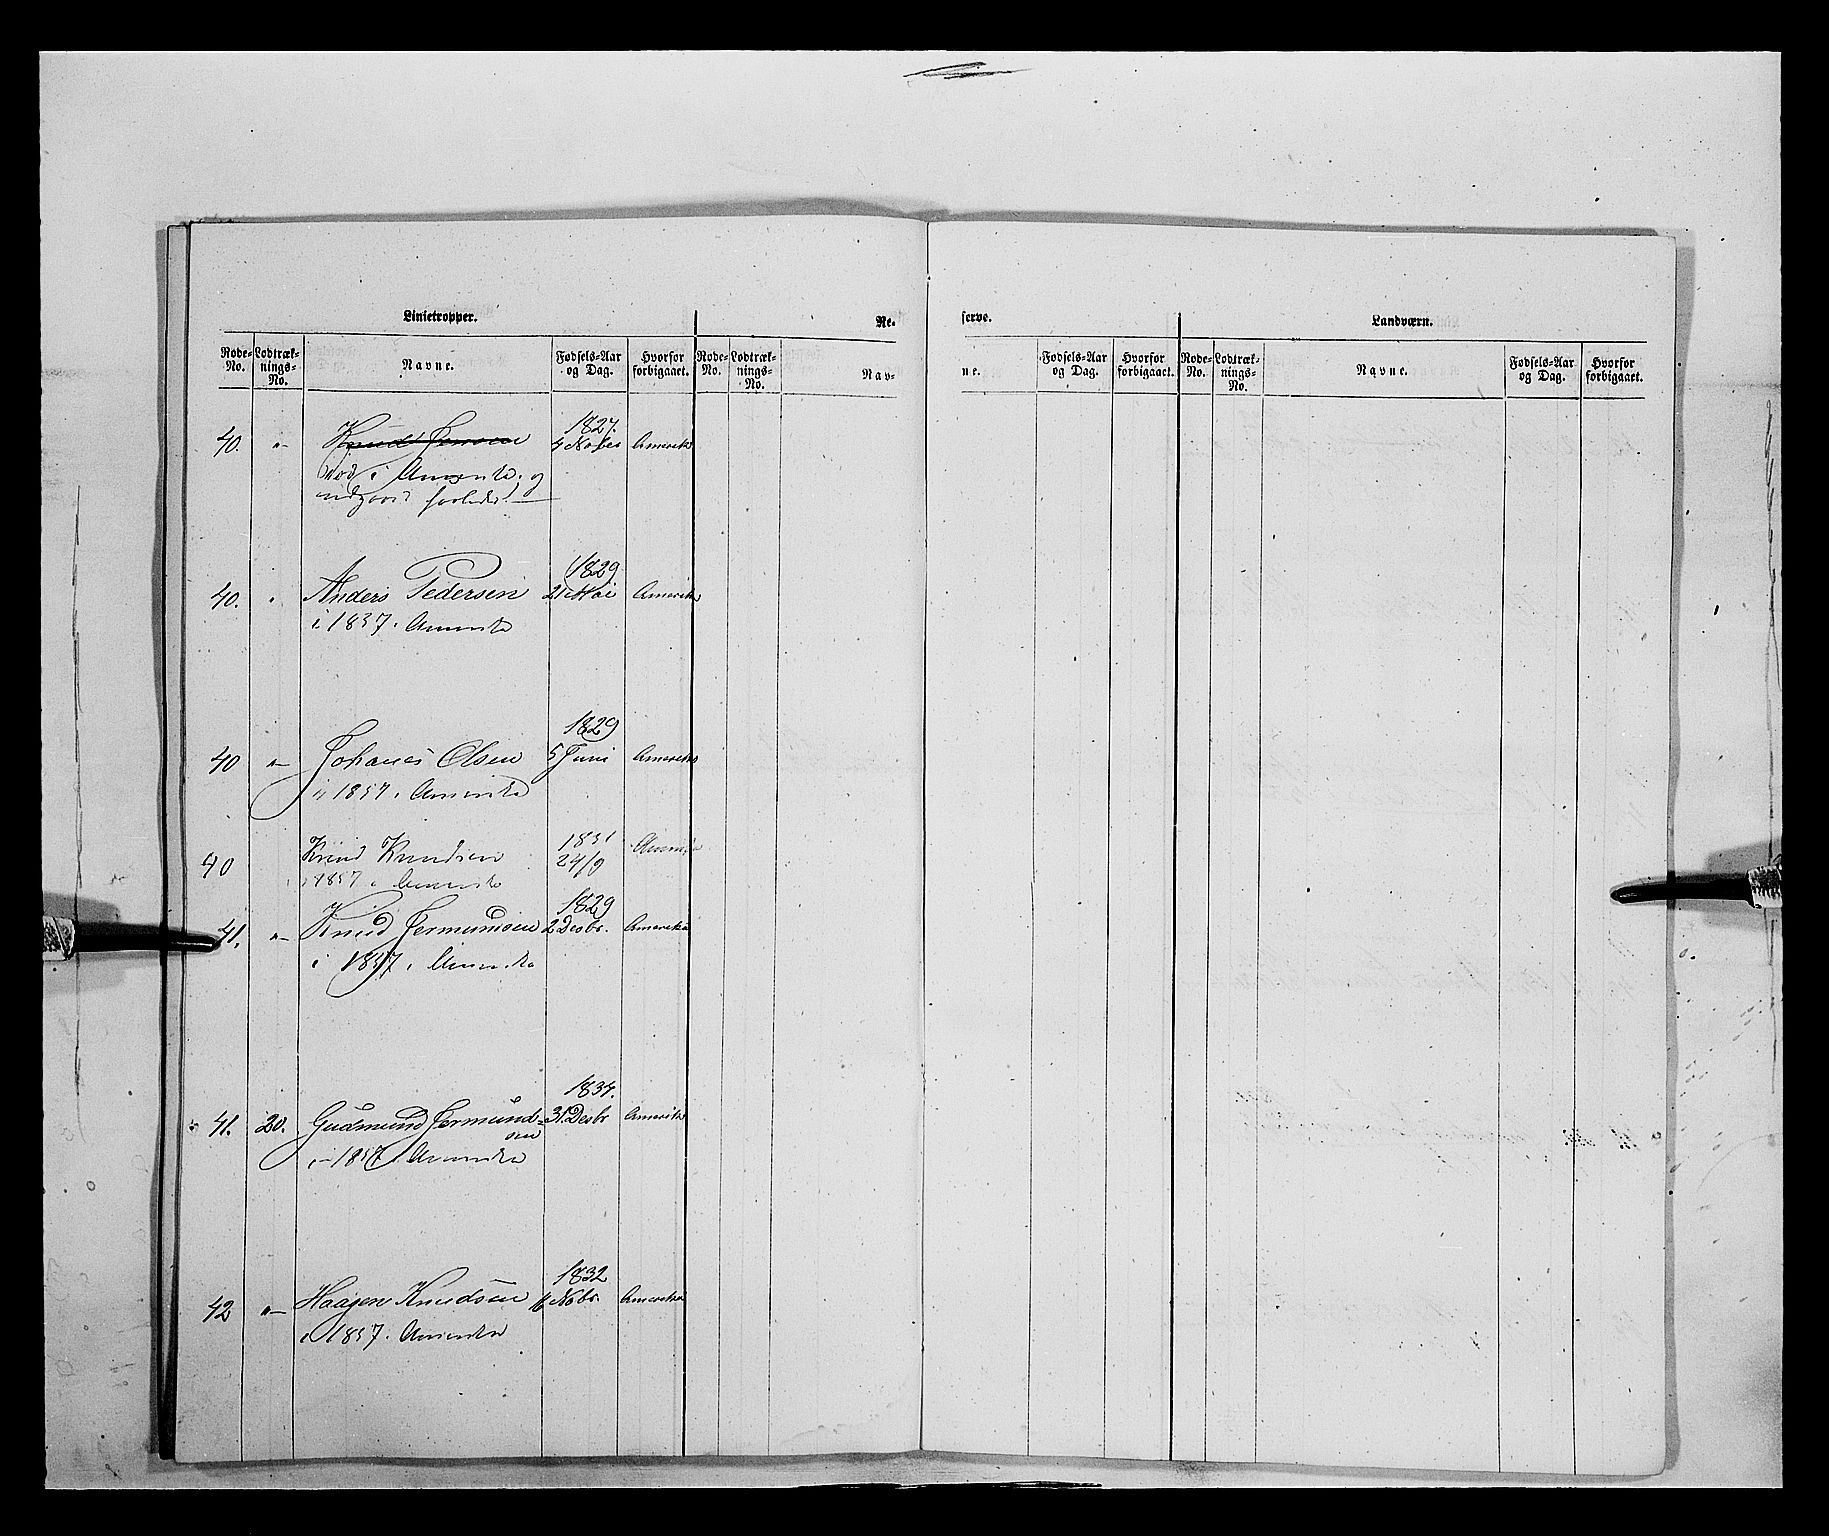 Linietropper.
Re-
serve.
Landværn.
Rode-No. Lodtræk-nings-No. Navne. Fødsels-Aar og Dag. Hvorfor forbigaaet. Rode-No. Lodtræk-nings-No. Nav-
ne. Fødsels-Aar og Dag. Hvorfor forbigaaet. Rode-No. Lodtræk-nings-No. Navne. Fødsels-Aar og Dag. Hvorfor forbigaaet.
1827.
40. "- Knud Jensen 4 Novbr Amerika
død i Amerika, og
udgaar
1829
40. " Anders Pedersen 21 Mai Amerika
i 1857 i Amerika
1829
40 "- Johanes Olsen 5 Juni Amerika
i 1857 i Amerika
1831
40 Knud Knudsen 24/9 Amerika
i 1857 i Amerika
1829
41. "- Knud Germundsen 2 Desbr. Amerika
i 1857 i Amerika
1834.
41. 20. Gudmund Germund- 31 Desbr Amerika
sen
i 1857 i Amerika
1832
42 "- Haagen Knudsen 16 Nobr. Amerika
i 1857 i Amerika